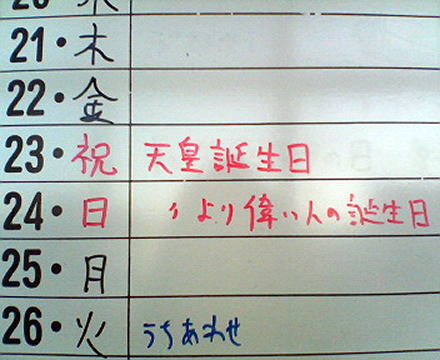 21・木
22・金
23・祝 天皇誕生日
24・日 〃より偉い人の誕生日
25・月
26・火 うちあわせ